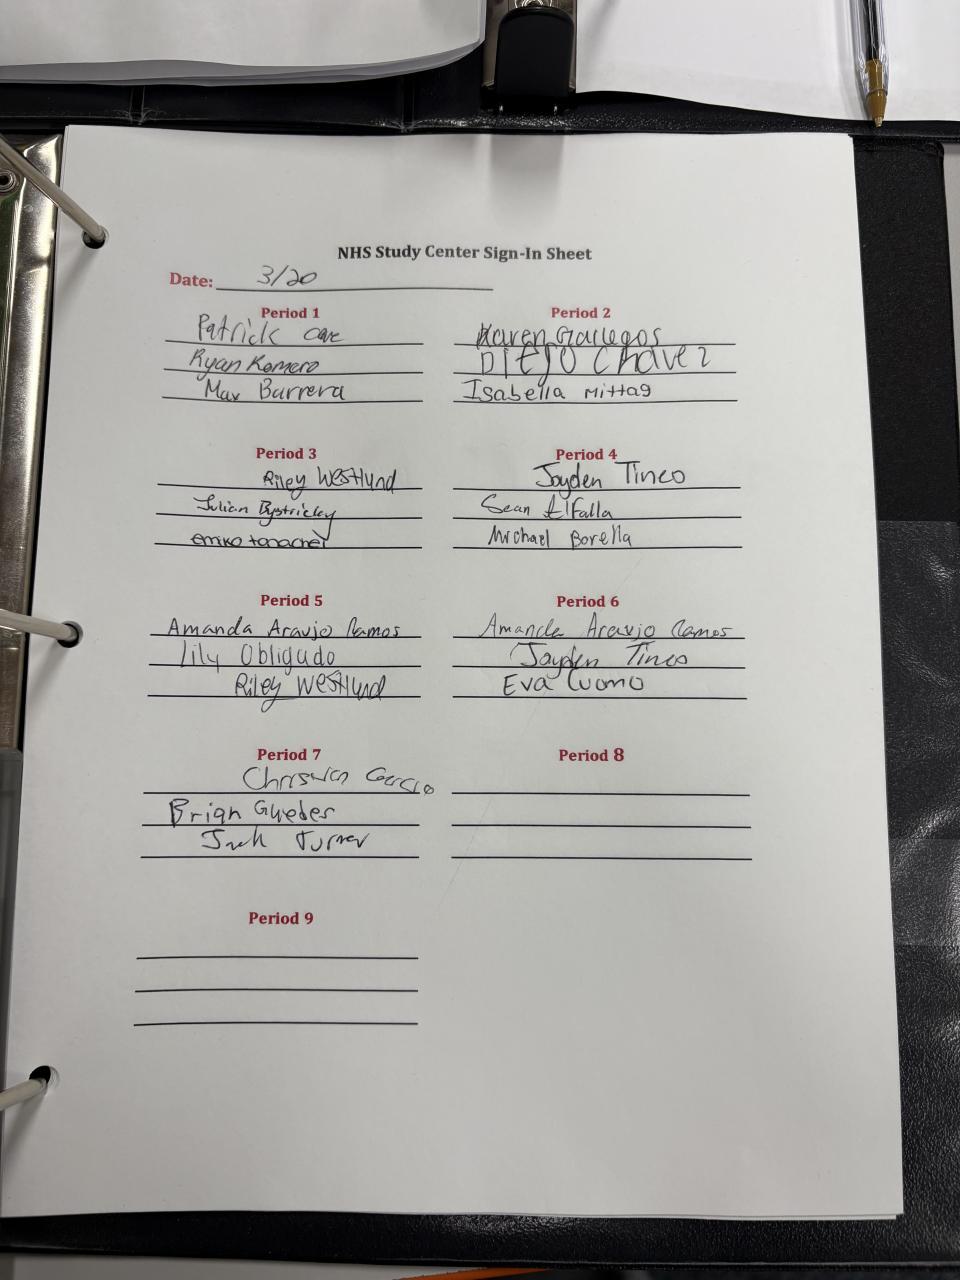 NHS Study Center Sign-In Sheet
Date: 3/20
Period 1
Patrick
Ryan Romero
Max Barrera
Period 2
Karen Gallegos
Diego Chavez
Isabella Mittag
Period 3
Riley Westlund
Julian Bystricky
Period 4
Jayden Tineo
Sean Elfalla
Michael Borella
Period 5
Amanda Araujo Ramos
Lily Obligado
Riley Westlund
Period 6
Amanda Araujo Ramos
Jayden Tineo
Eva Cuomo
Period 7
Christian Garcia
Brian Guedes
Jack Turner
Period 8
Period 9